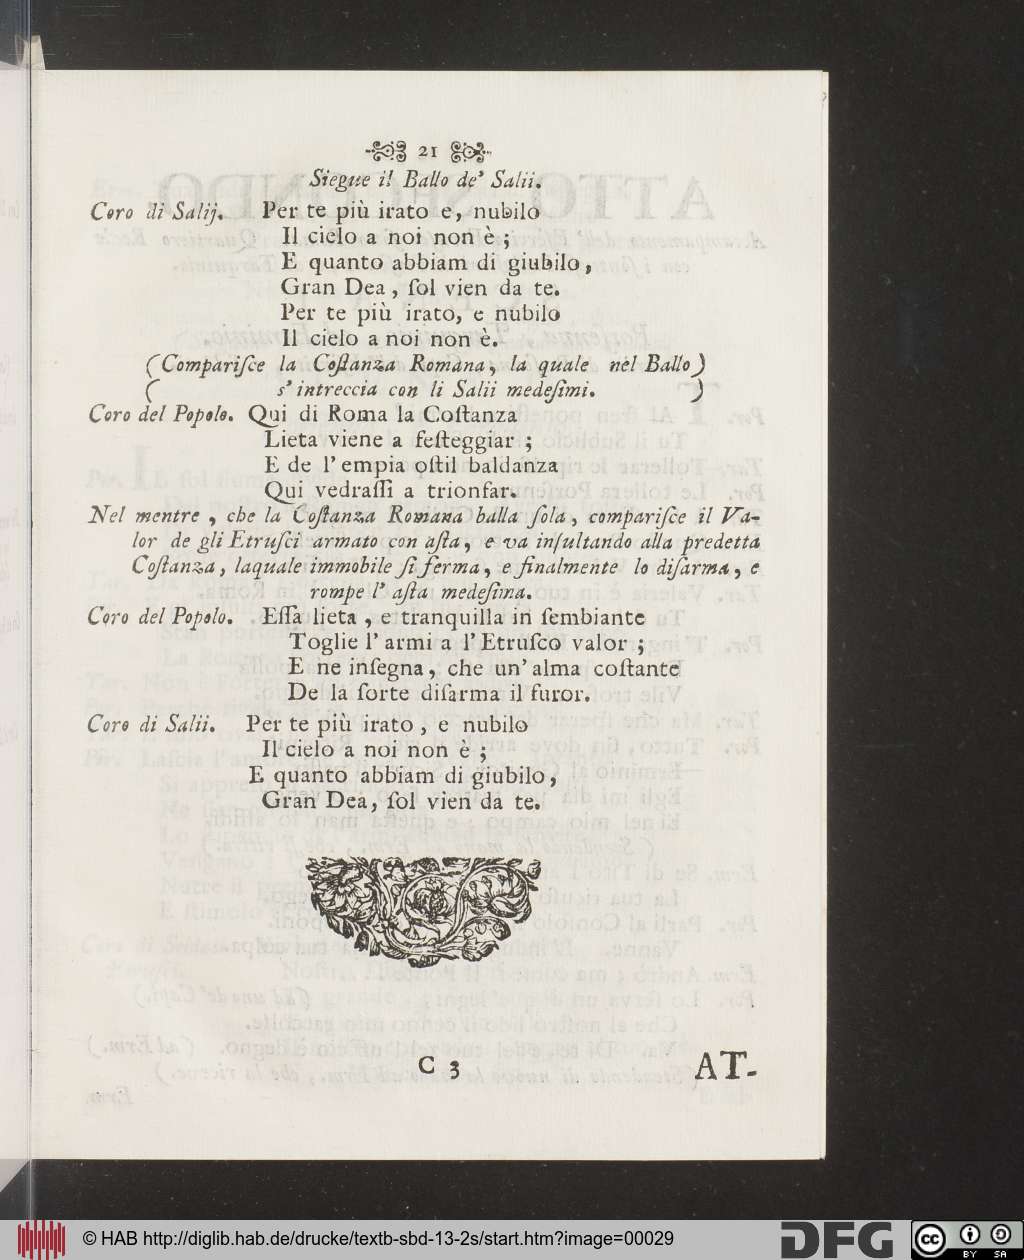 21
Siegue il Ballo de' Salii.
Coro di Salij. Per te più irato e, nubilo
Il cielo a noi non è ;
E quanto abbiam di giubilo,
Gran Dea, ſol vien da te.
Per te più irato, e nubilo
Il cielo a noi non è.
(Compariſce la Coſtanza Romana, la quale nel Ballo)
( s'intreccia con li Salii medeſimi. )
Coro del Popolo. Qui di Roma la Coſtanza
Lieta viene a feſteggiar ;
E de l'empia oſtil baldanza
Qui vedraſſi a trionfar.
Nel mentre, che la Coſtanza Romana balla ſola, compariſce il Va-
lor de gli Etruſci armato con aſta, e va inſultando alla predetta
Coſtanza, laquale immobile ſi ferma, e finalmente lo diſarma, e
rompe l' aſta medeſima.
Coro del Popolo. Eſſa lieta, e tranquilla in ſembiante
Toglie l'armi a l'Etruſco valor ;
E ne inſegna, che un'alma coſtante
De la ſorte diſarma il furor.
Coro di Salii. Per te più irato, e nubilo
Il cielo a noi non è ;
E quanto abbiam di giubilo,
Gran Dea, ſol vien da te.
C 3 AT-
© HAB http://diglib.hab.de/drucke/textb-sbd-13-2s/start.htm?image=00029
DFG
cc BY SA